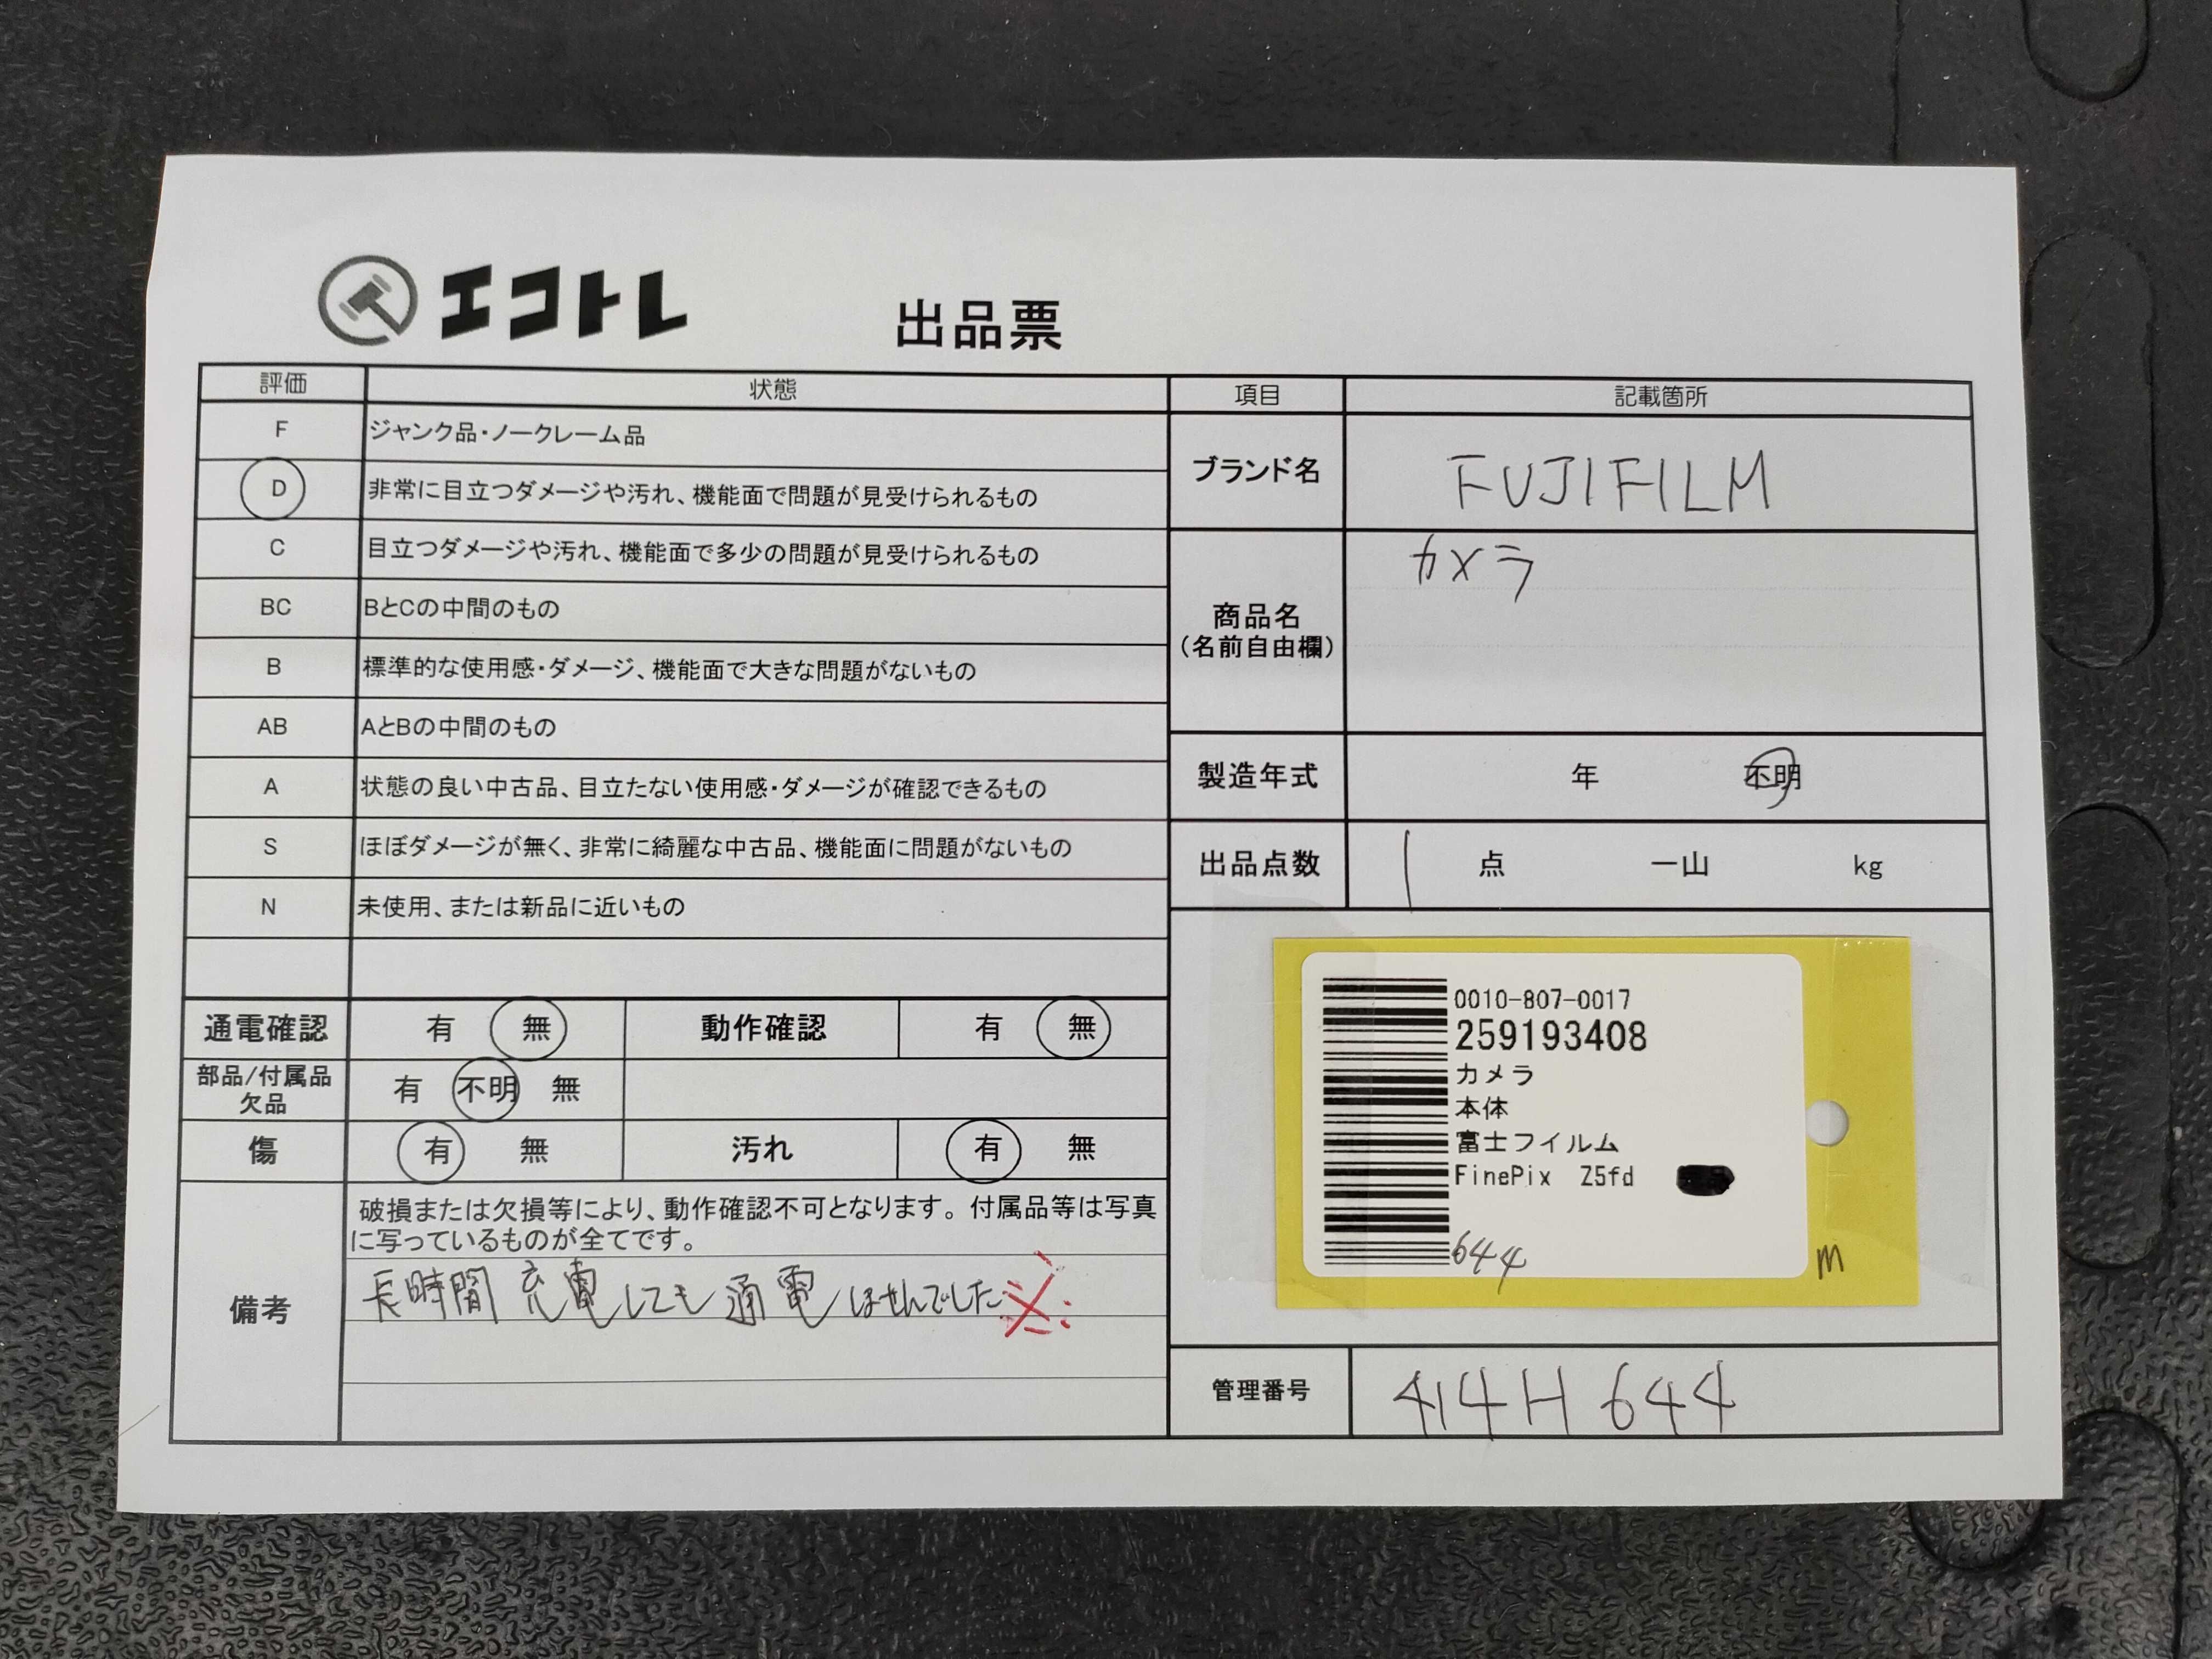 エコトレ
出品票
評価 状態
F ジャンク品・ノークレーム品
D 非常に目立つダメージや汚れ、機能面で問題が見受けられるもの
C 目立つダメージや汚れ、機能面で多少の問題が見受けられるもの
BC BとCの中間のもの
B 標準的な使用感・ダメージ、機能面で大きな問題がないもの
AB AとBの中間のもの
A 状態の良い中古品、目立たない使用感・ダメージが確認できるもの
S ほぼダメージが無く、非常に綺麗な中古品、機能面に問題がないもの
N 未使用、または新品に近いもの
通電確認 有 無 動作確認 有 無
部品/付属品
欠品 有 不明 無
傷 有 無 汚れ 有 無
備考
破損または欠損等により、動作確認不可となります。付属品等は写真
に写っているものが全てです。
長時間充電しても通電しませんでした
項目 記載箇所
ブランド名 FUJIFILM
商品名
(名前自由欄)
カメラ
製造年式 年 不明
出品点数 1 点 一山 kg
0010-807-0017
259193408
カメラ
本体
富士フイルム
FinePix Z5fd
644
m
管理番号 414H644